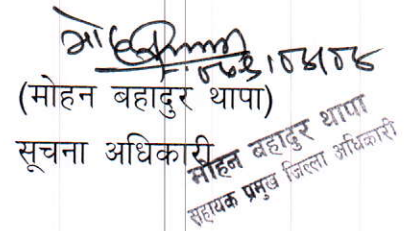 (मोहन बहादुर थापा)
सूचना अधिकारी
मोहन बहादुर थापा
सहायक प्रमुख जिल्ला अधिकारी